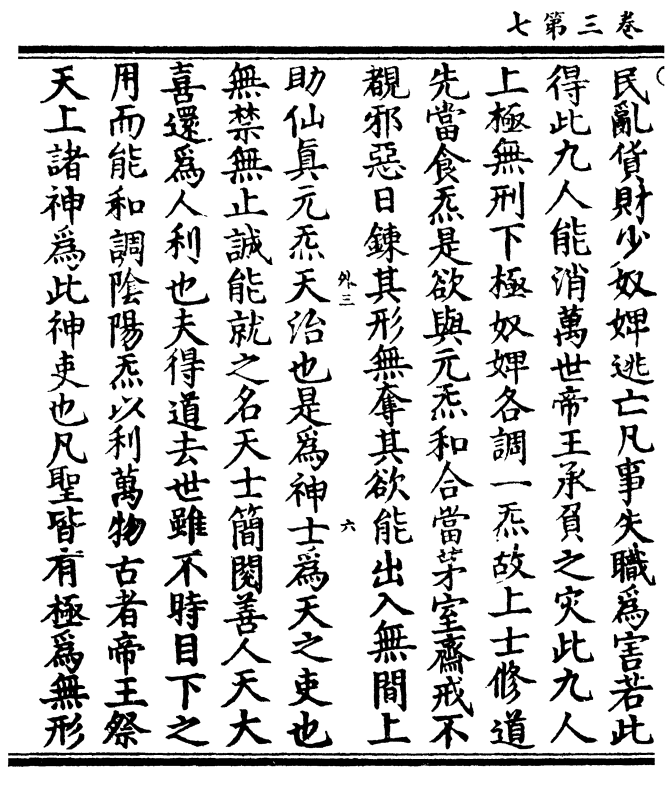 卷三第七
民亂貨財少奴婢逃亡凡事失職爲害若此
得此九人能消萬世帝王承負之灾此九人
上極無刑下極奴婢各調一炁故上士修道
先當食炁是欲與元炁和合當茅室齋戒不
覩邪惡日鍊其形無奪其欲能出入無間上
外三 六
助仙眞元炁天治也是爲神士爲天之吏也
無禁無止誠能就之名天士簡閱善人天大
喜還爲人利也夫得道去世雖不時目下之
用而能和調陰陽炁以利萬物古者帝王祭
天上諸神爲此神吏也凡聖皆有極爲無形